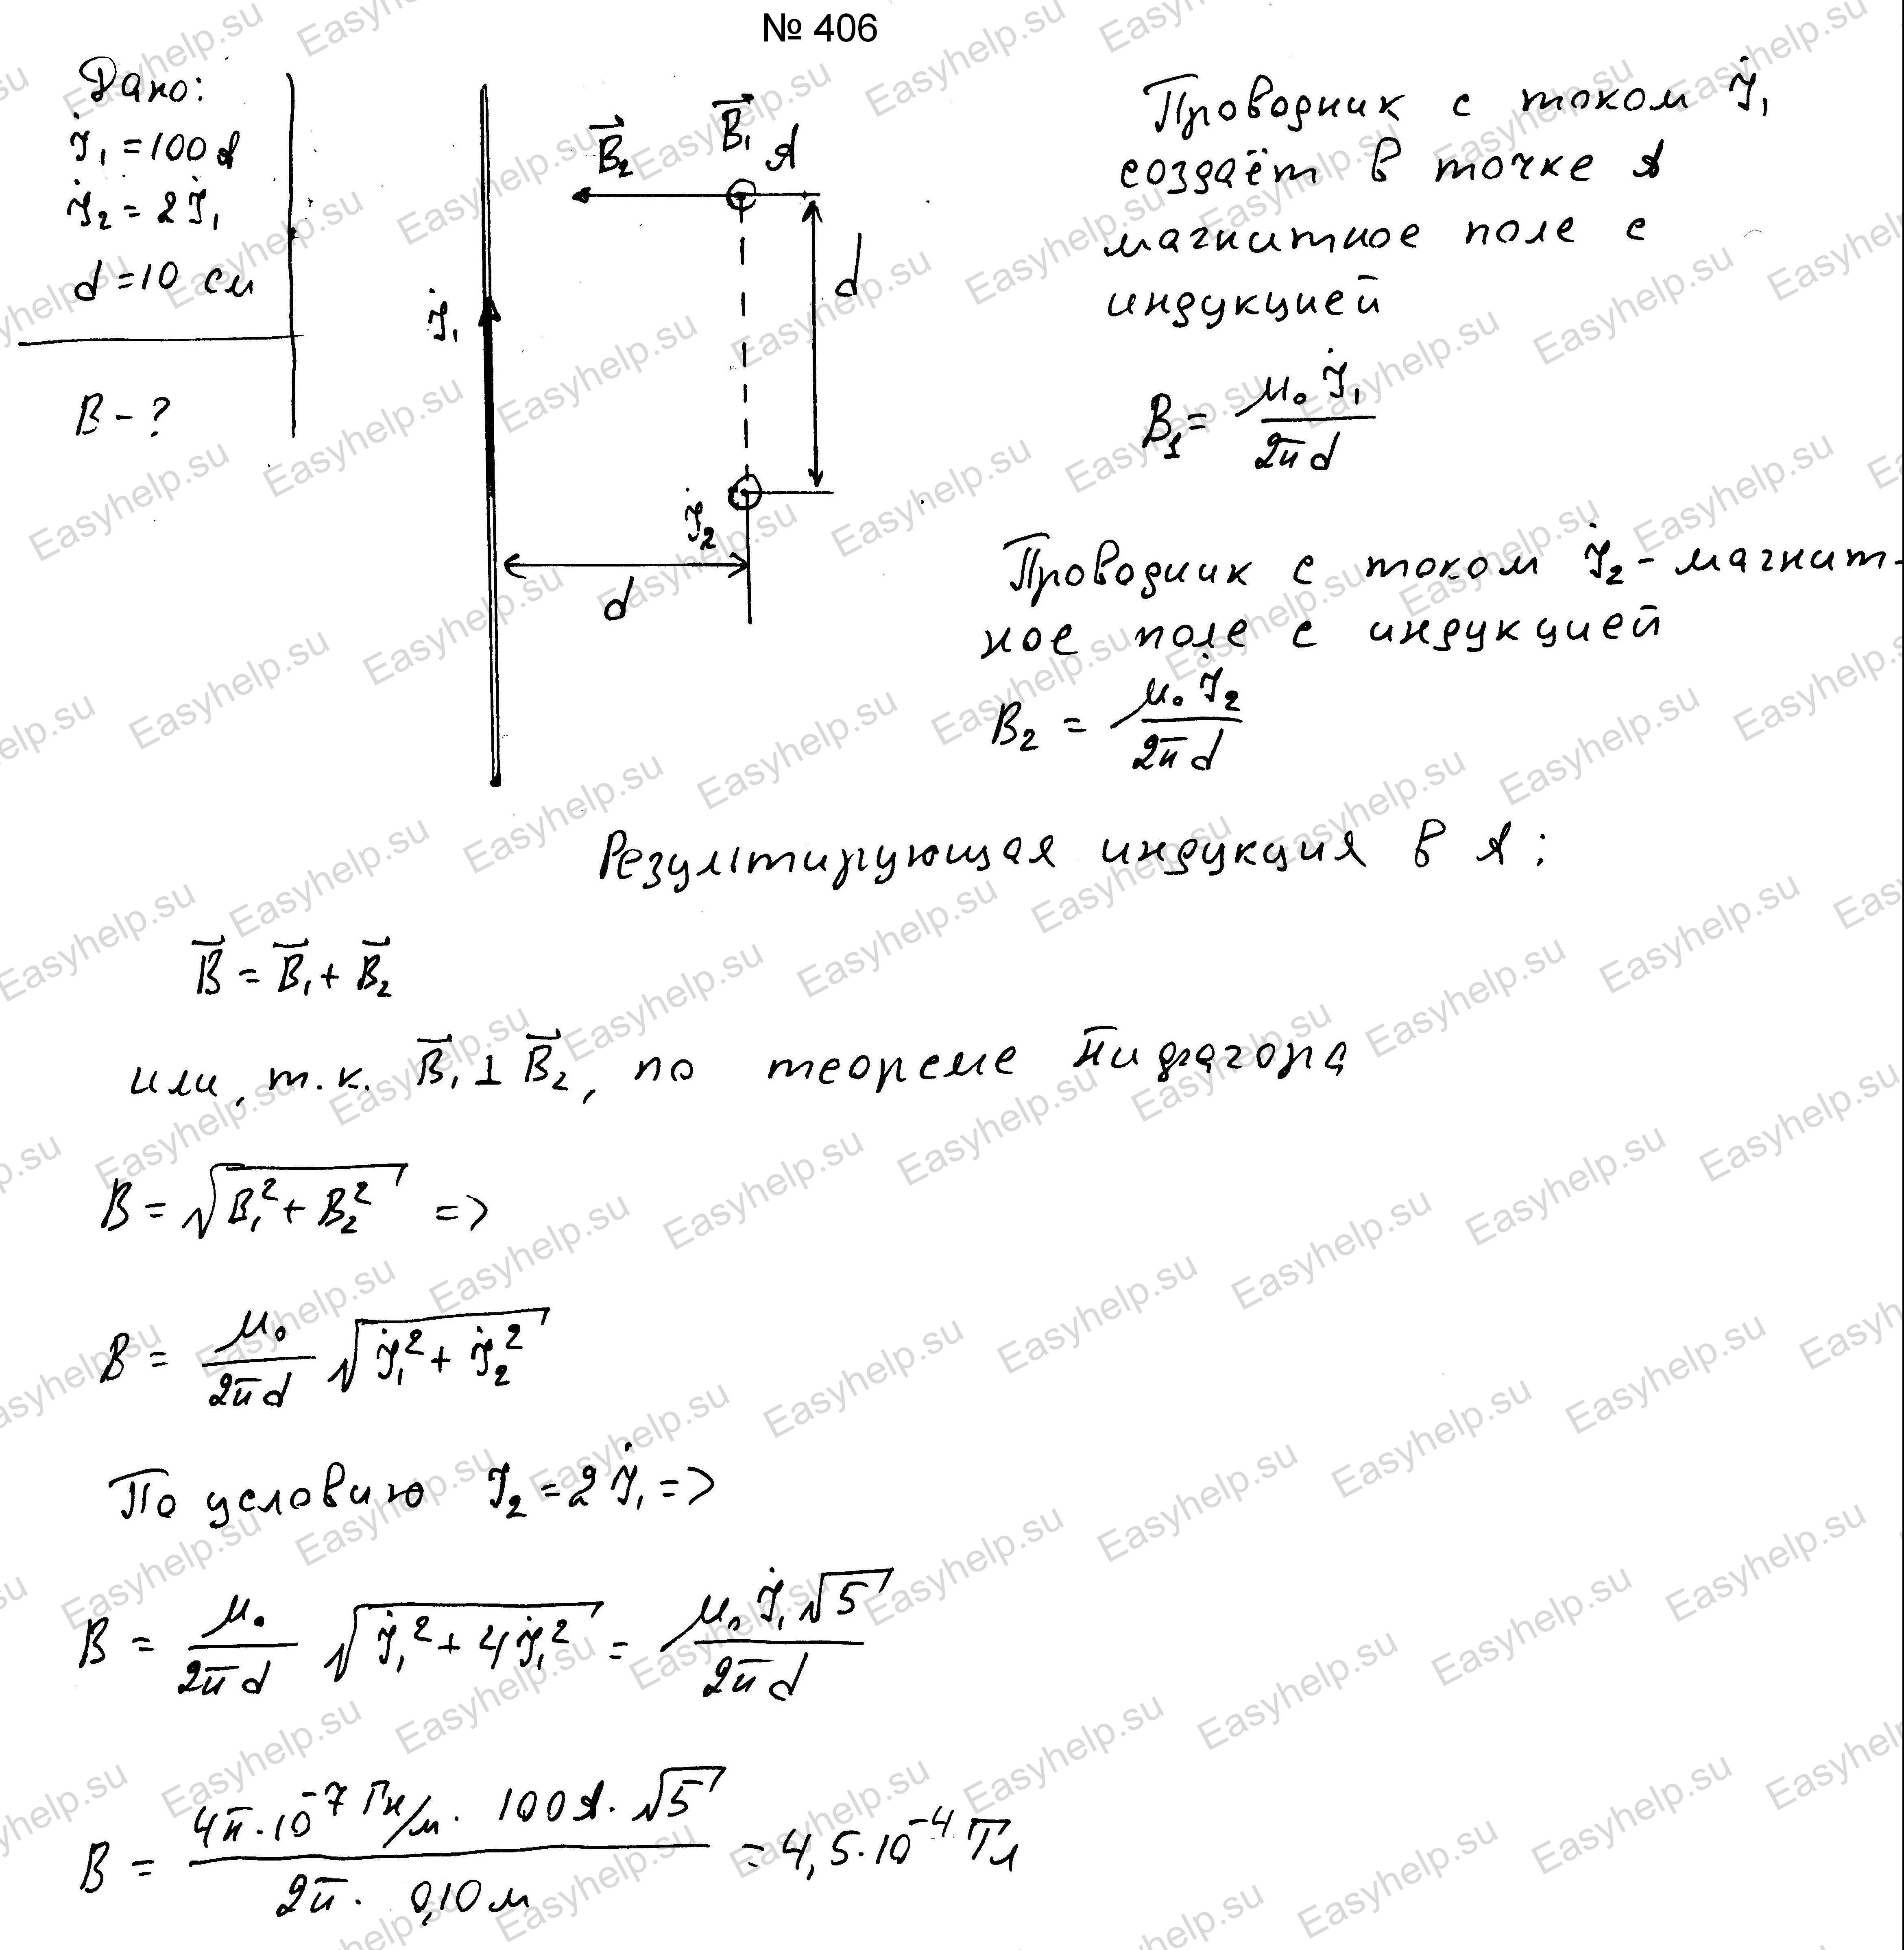 № 406
Дано:
I₁ = 100 А
I₂ = 2I₁
d = 10 см
B - ?
B⃗₂
B⃗₁
А
d
I₁
I₂
d
Проводник с током I₁
создаёт в точке А
магнитное поле с
индукцией
B₁ = μ₀ I₁ / 2π d
Проводник с током I₂ - магнит-
ное поле с индукцией
B₂ = μ₀ I₂ / 2π d
Результирующая индукция в А:
B⃗ = B⃗₁ + B⃗₂
или, т.к. B⃗₁ ⊥ B⃗₂, по теореме Пифагора
B = √(B₁² + B₂²) =>
B = μ₀ / 2π d √(I₁² + I₂²)
По условию I₂ = 2I₁ =>
B = μ₀ / 2π d √(I₁² + 4I₁²) = μ₀ I₁ √5 / 2π d
B = 4π · 10⁻⁷ Гн/м · 100 А · √5 / 2π · 0,10 м = 4,5 · 10⁻⁴ Тл
Easyhelp.su